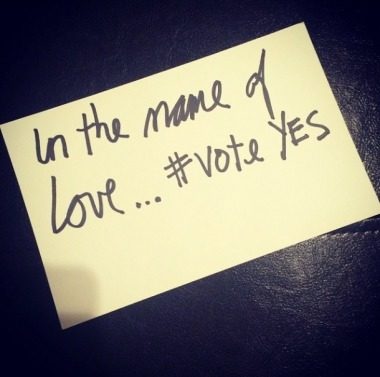 In the name of
Love... #Vote YES